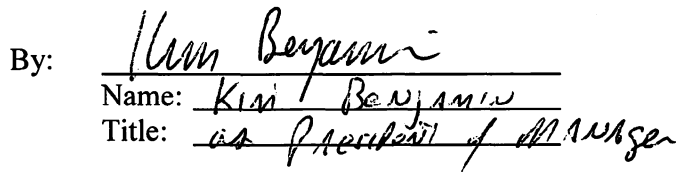 By: Kim Benjamin
Name: Kim Benjamin
Title: as President of Manager